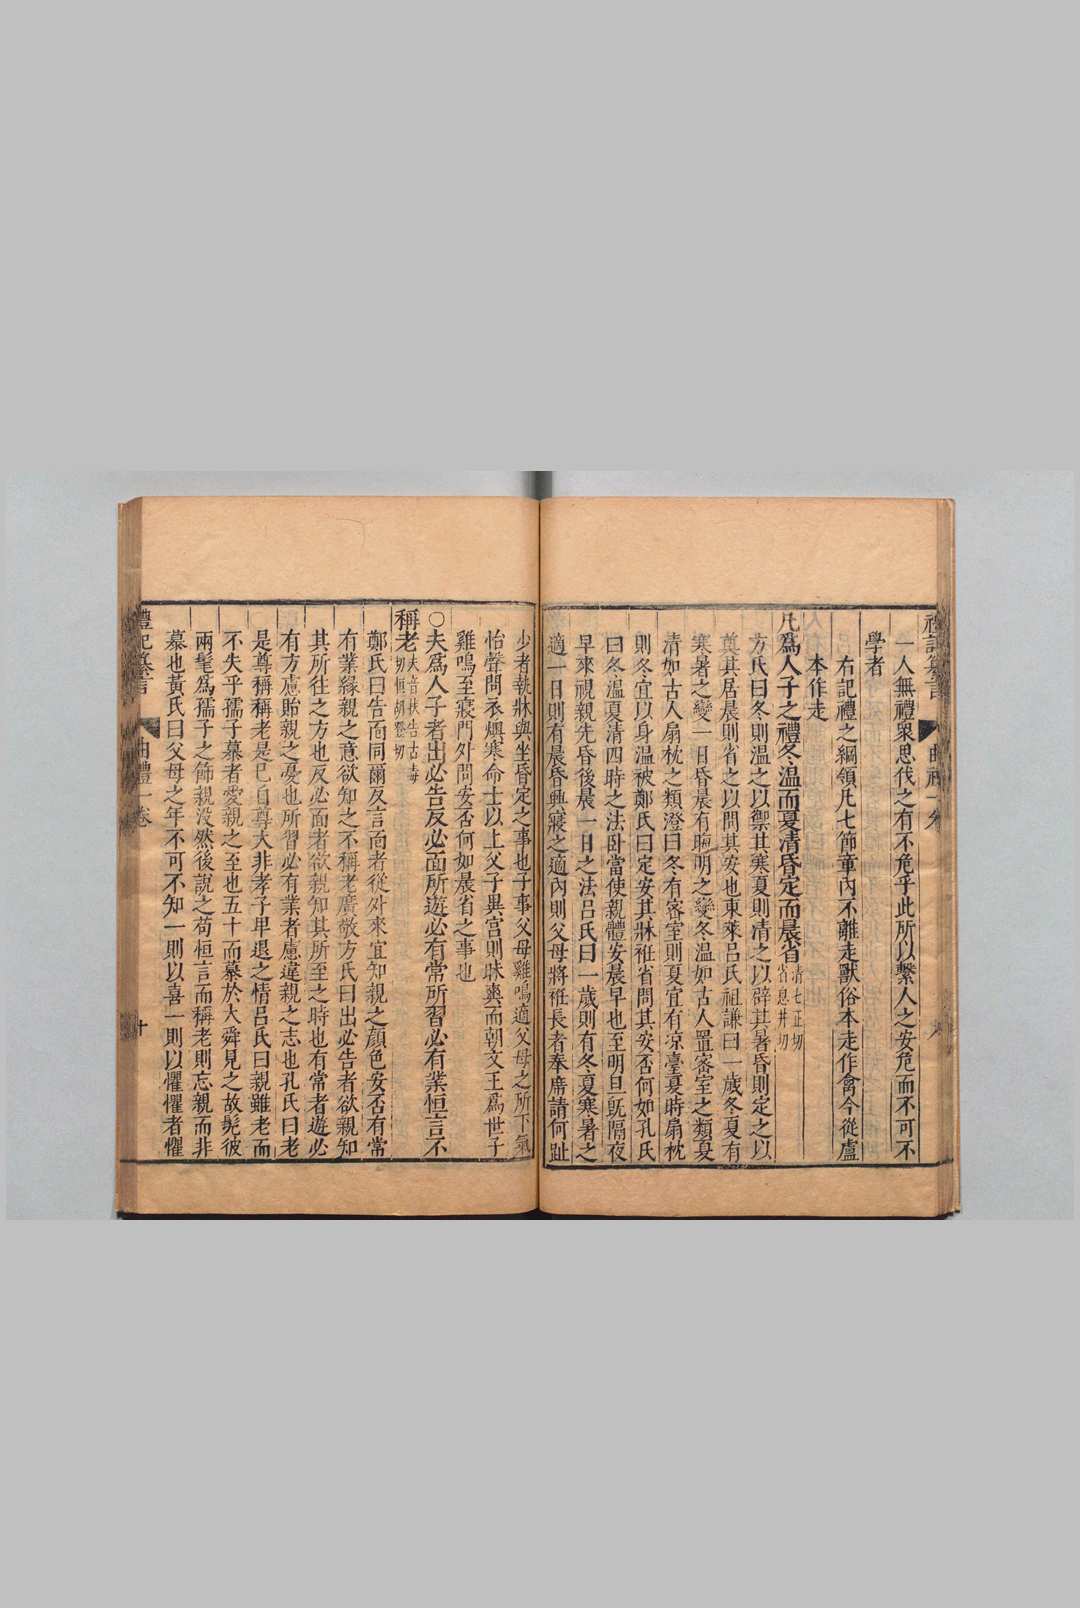 禮記纂言
曲禮一卷
一人無禮衆思伐之有不危乎此所以繫人之安危而不可不
學者
右記禮之綱領凡七節章内不離走獸俗本走作禽今從盧
本作走
凡爲人子之禮冬温而夏凊昏定而晨省凊七正切省息井切
方氏曰冬則温之以禦其寒夏則凊之以辟其暑昏則定之以
奠其居晨則省之以問其安也東萊吕氏祖謙曰一歲冬夏有
寒暑之變一日昏晨有晦明之變冬温如古人置密室之類夏
凊如古人扇枕之類澄曰冬有密室則夏宜有凉臺夏時扇枕
則冬宜以身温被鄭氏曰定安其牀衽省問其安否何如孔氏
曰冬温夏凊四時之法卧當使親體安晨早也至明旦旣隔夜
早來視親先昏後晨一日之法吕氏曰一歲則有冬夏寒暑之
適一日則有晨昏興寢之適内則父母將衽長者奉席請何趾
少者執牀與坐昏定之事也子事父母雞鳴適父母之所下氣
怡聲問衣燠寒命士以上父子異宫則昧爽而朝文王爲世子
雞鳴至寢門外問安否何如晨省之事也
○夫爲人子者出必告反必面所遊必有常所習必有業恒言不
稱老夫音扶告古毒切恒胡登切
鄭氏曰告面同爾反言面者從外來宜知親之顔色安否有常
有業緣親之意欲知之不稱老廣敬方氏曰出必告者欲親知
其所往之方也反必面者欲親知其所至之時也有常者遊必
有方慮貽親之憂也所習必有業者慮違親之志也孔氏曰老
是尊稱稱老是已自尊大非孝子早退之情吕氏曰親雖老而
不失乎孺子慕者愛親之至也五十而慕於大舜見之故髧彼
兩髦爲孺子之飾親没然後說之苟恒言而稱老則忘親而非
慕也黄氏曰父母之年不可不知一則以喜一則以懼懼者懼
禮記纂言
曲禮一卷
十